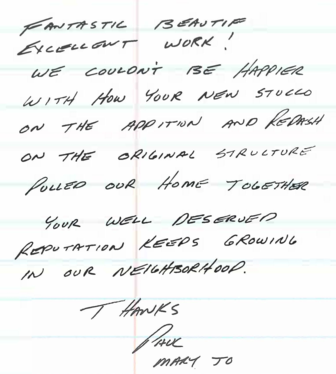 FANTASTIC BEAUTIF
EXCELLENT WORK!
WE COULDN'T BE HAPPIER
WITH HOW YOUR NEW STUCCO
ON THE ADDITION AND REDASH
ON THE ORIGINAL STRUCTURE
PULLED OUR HOME TOGETHER
YOUR WELL DESERVED
REPUTATION KEEPS GROWING
IN OUR NEIGHBORHOOD.
THANKS
PAUL
MARY JO